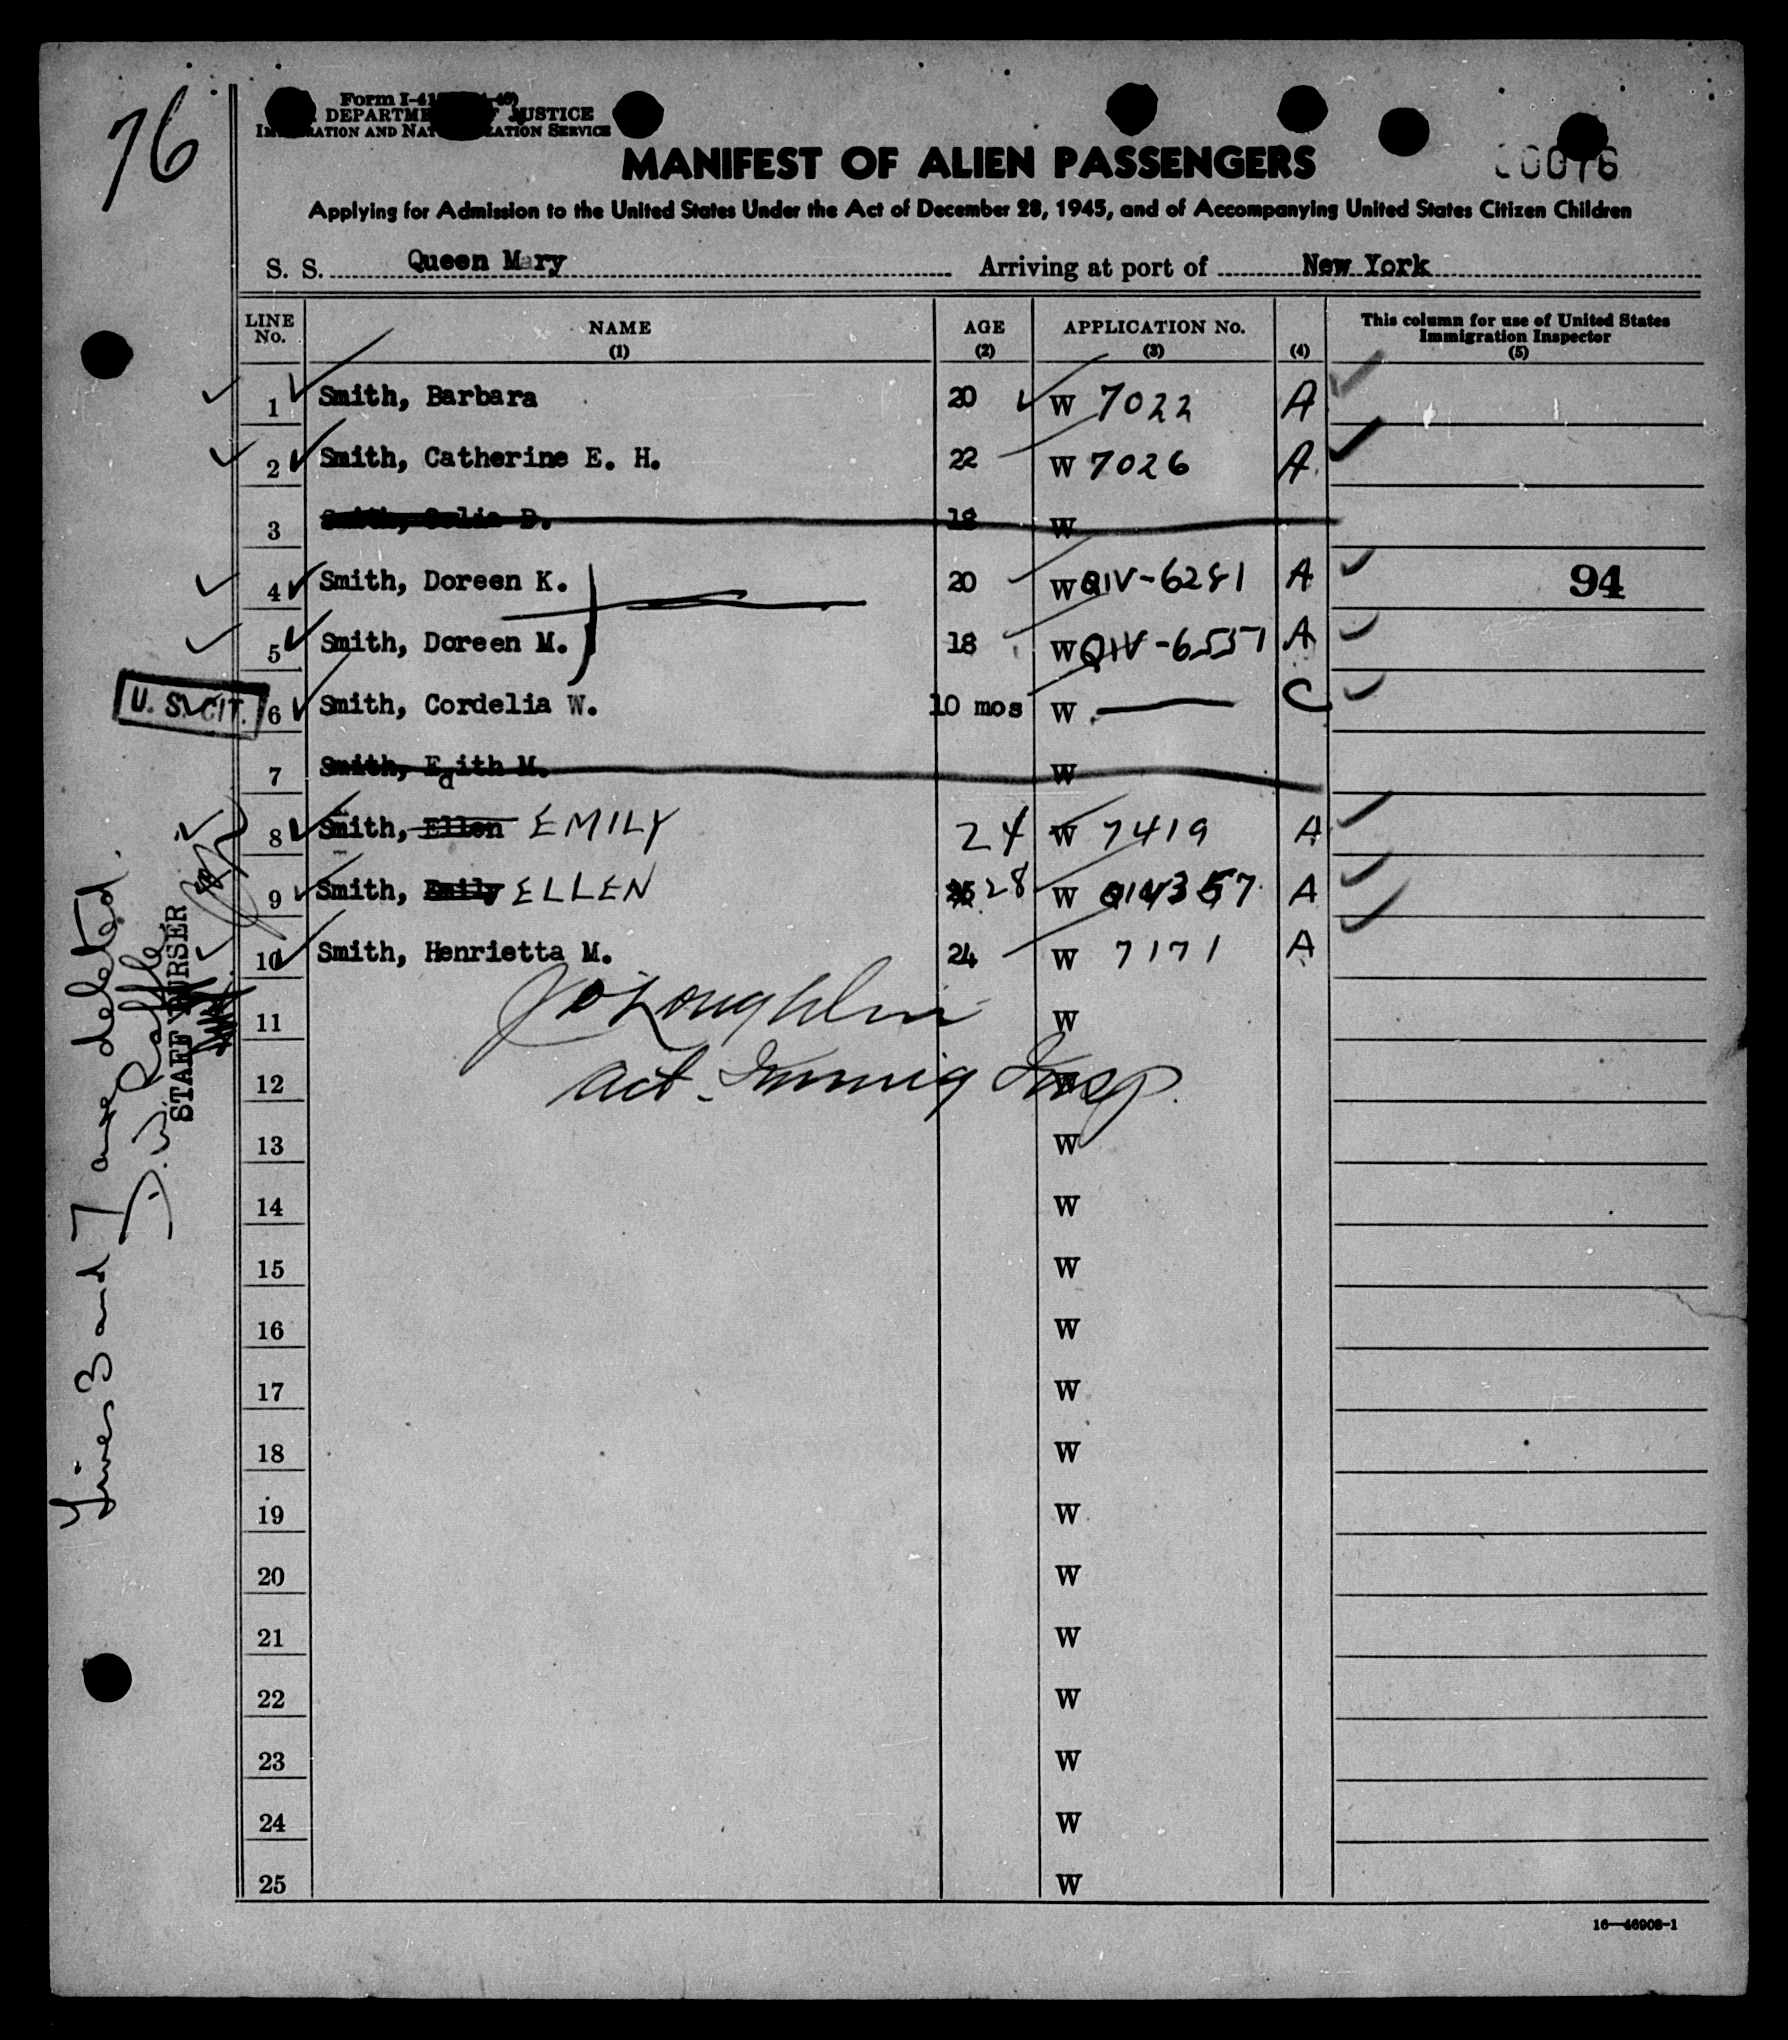 76
Form I-41
DEPARTMENT OF JUSTICE
IMMIGRATION AND NATURALIZATION SERVICE
MANIFEST OF ALIEN PASSENGERS
00076
Applying for Admission to the United States Under the Act of December 28, 1945, and of Accompanying United States Citizen Children
S. S. Queen Mary Arriving at port of New York
LINE No. NAME (1) AGE (2) APPLICATION No. (3) (4) This column for use of United States Immigration Inspector (5)
1 Smith, Barbara 20 W 7022 A
2 Smith, Catherine E. H. 22 W 7026 A.
3 Smith, Celia D. 18 W
4 Smith, Doreen K. 20 W QIV-6281 A 94
5 Smith, Doreen M. 18 W QIV-6537 A
U. S. CIT. 6 Smith, Cordelia W. 10 mos W — C
7 Smith, Edith M. W
8 Smith, Ellen EMILY 24 W 7419 A
9 Smith, Emily ELLEN 28 W A
10 Smith, Henrietta M. 24 W 7171 A
J O'Loughlin
11 W
act. Immig Insp.
12 W
13 W
14 W
15 W
16 W
17 W
18 W
19 W
20 W
21 W
22 W
23 W
24 W
25 W
16—46908-1
Lines 3 and 7 are deleted.
STAFF PURSER